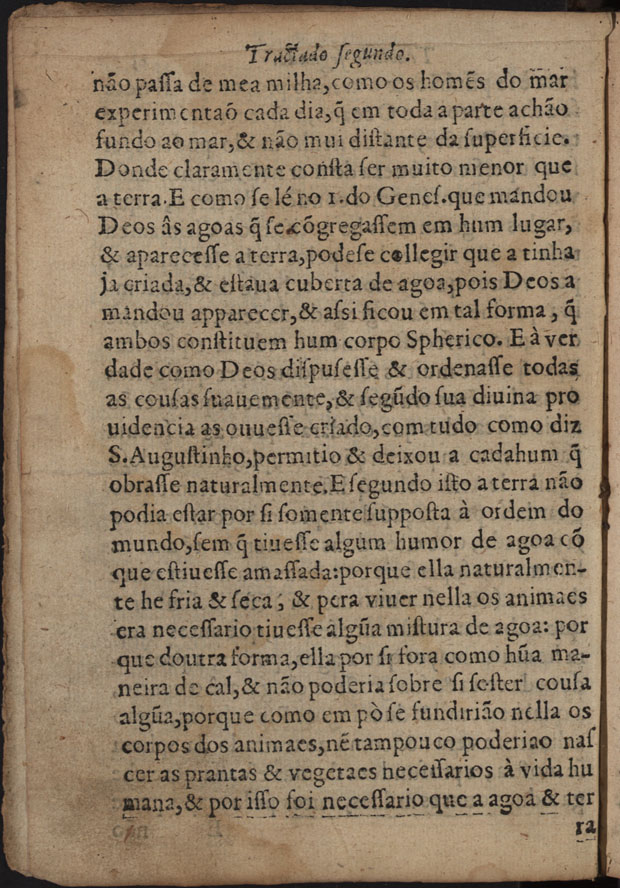 Tractado segundo.
não passa de mea milha,como os homẽs do mar
experimentaõ cada dia,q̃ em toda a parte achão
fundo ao mar,& não mui distante da superficie.
Donde claramente consta ser muito menor que
a terra.E como se lé no 1.do Genes.que mandou
Deos âs agoas q̃ se cõgregassem em hum lugar,
& aparecesse a terra,podese collegir que a tinha
ja criada,& estaua cuberta de agoa,pois Deos a
mandou apparecer,& assi ficou em tal forma , q̃
ambos constituem hum corpo Spherico. E à ver
dade como Deos dispusesse & ordenasse todas
as cousas suauemente,& segũdo sua diuina pro
uidencia as ouuesse criado,com tudo como diz
S.Augustinho,permitio & deixou a cadahum q̃
obrasse naturalmente.E segundo isto a terra não
podia estar por si somente supposta à ordem do
mundo,sem q̃ tiuesse algum humor de agoa cõ
que estiuesse amassada:porque ella naturalmen-
te he fria & seca , & pera viuer nella os animaes
era necessario tiuesse algũa mistura de agoa: por
que doutra forma,ella por si fora como hũa ma-
neira de cal,& não poderia sobre si soster cousa
algũa,porque como em pò se fundirião nella os
corpos dos animaes,nẽ tampouco poderiao nas
cer as prantas & vegetaes necessarios à vida hu
mana,& por isso foi necessario que a agoa & ter
ra